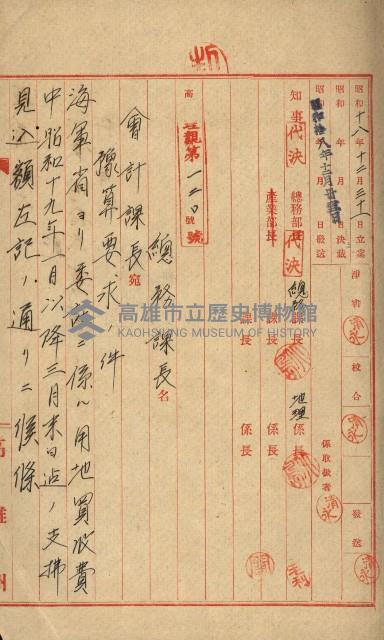 昭和十八年十二月三十一日立案
昭和 年 月 日決裁
昭和 年 月 日發送
昭和拾八年十二月
淨書
清永
校合
清永
發送
清永
係取扱者
清永
知事
代決
總務部長
代決
產業部長
總務課長
課長
課長
地理係長
係長
係長
高
第一二〇號
號
總務課長名
會計課長宛
豫算要求ノ件
海軍省ヨリ委託ニ係ル用地買收費
中昭和十九年一月以降三月末日迄ノ支拂
見込額左記ノ通リニ候條
高雄州
高雄市立歷史博物館
KAOHSIUNG MUSEUM OF HISTORY